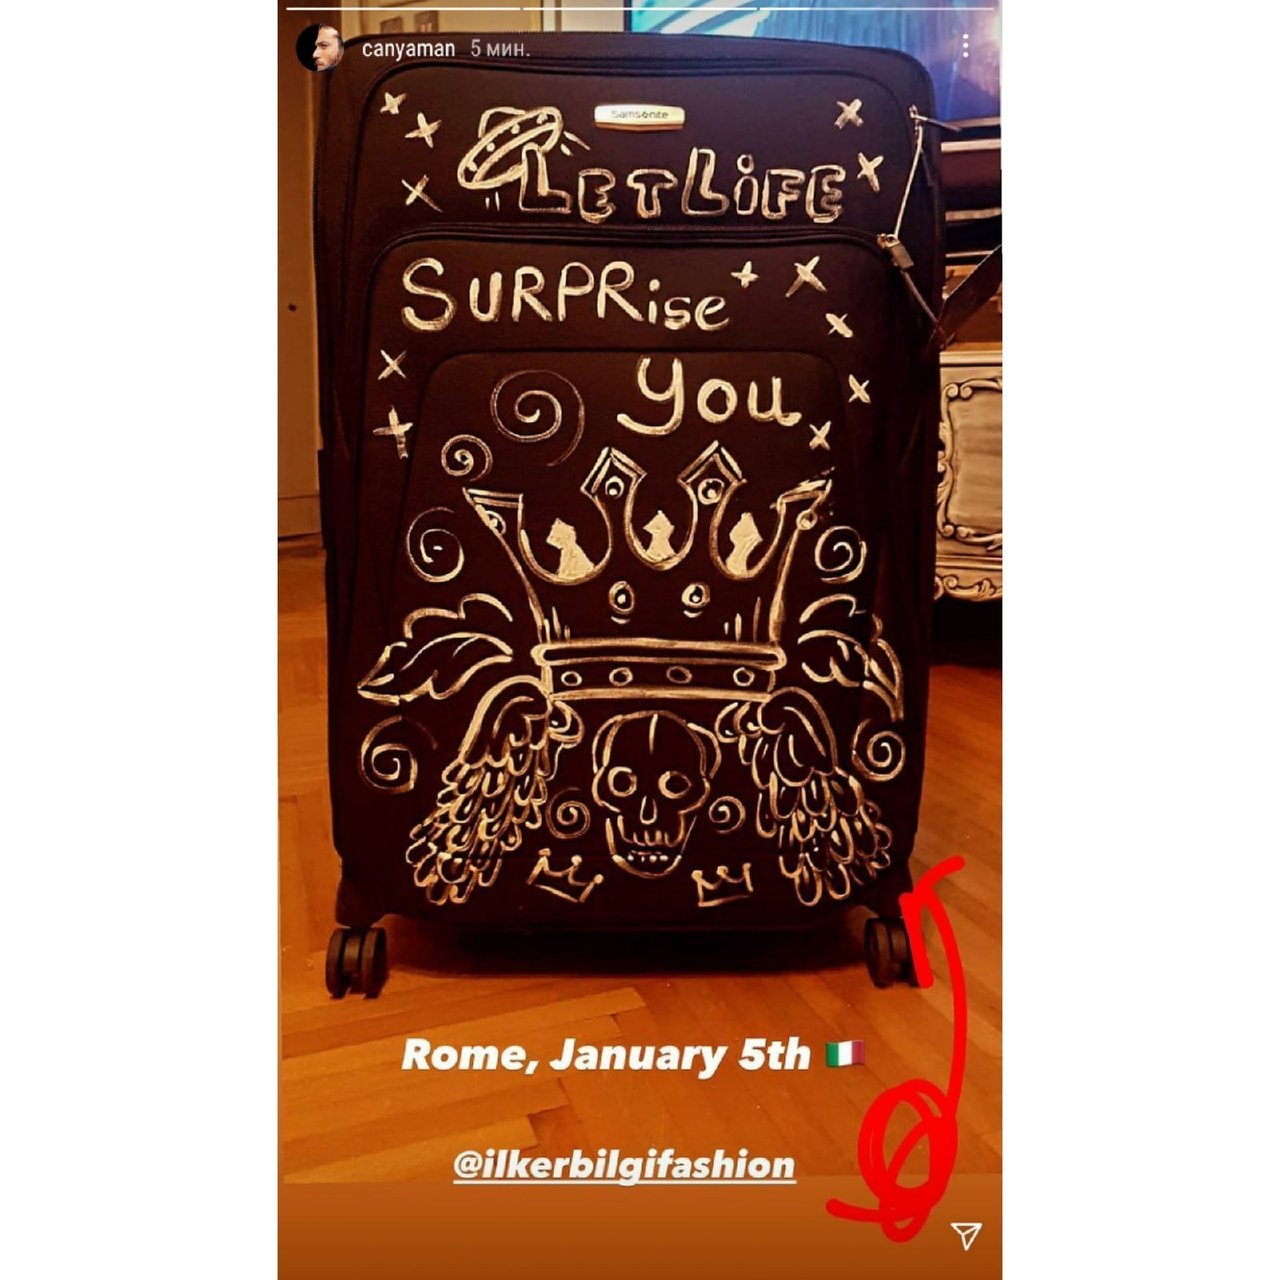 canyaman 5 мин.
Samsonite
LET LiFE
SURPRise
You
Rome, January 5th 🇮🇹
@ilkerbilgifashion